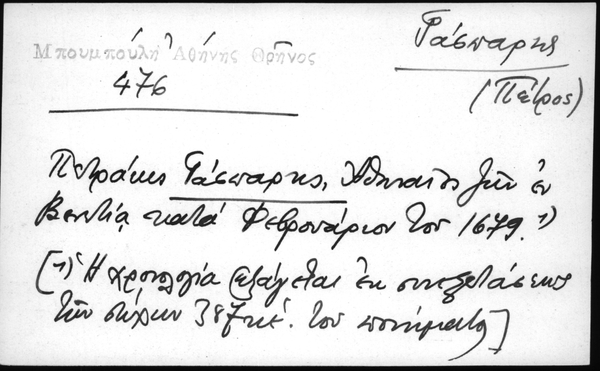 Γάσπαρης
Μπουμπούλη Ἀθήνης Θρῆνος
476
(Πέτρος)
Πετράκης Γάσπαρης, Ἀθηναῖος ζῶν ἐν
Βενετίᾳ κατά Φεβρουάριον τοῦ 1679. 1)
[1) Ἡ χρονολογία ἐξάγεται ἐκ συνεξετάσεως
τῶν στίχων 387 κέ. τοῦ ποιήματος]